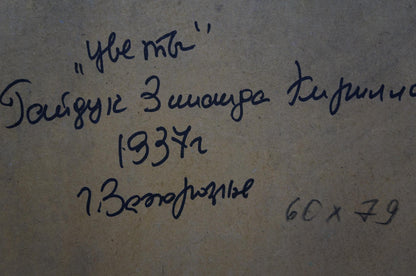 „цветы"
Гайдук Зинаида Кирилло
1937г
г.Запорожье
60 x 79